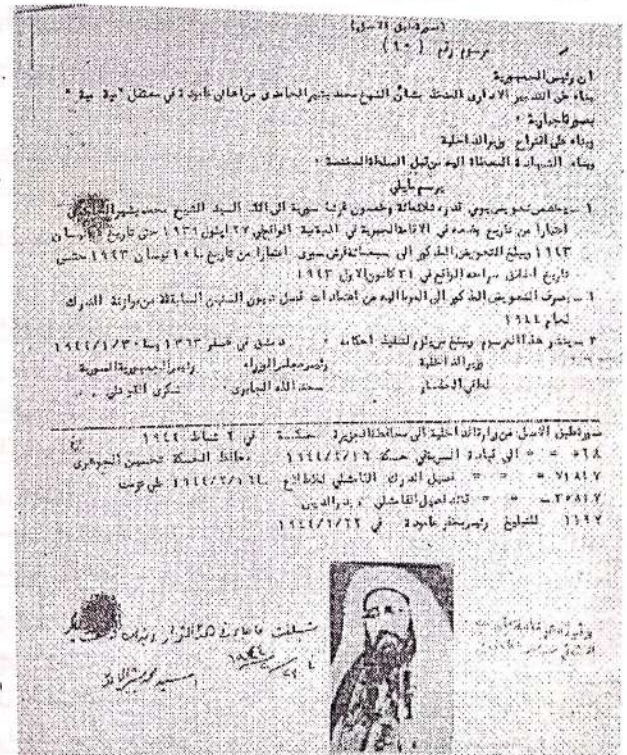 (صورة طبق الأصل)
مرسوم رقم (١٠)
ان رئيس الجمهورية
بناء على التدبير الاداري المتخذ بشأن الشيخ محمد بشير الحامدي من اهالي عامودة في معتقل "مية مية"
بصورة اجبارية ٠
وبناء على اقتراح وزير الداخلية
وبناء الشهادة المعطاة اليه من قبل السلطة المختصة ٠
يرسم مايلي
١ ـ يخصص تعويض يومي قدره ثلاثمائة وخمسون قرشا سورية الى السيد الشيخ محمد بشير
اعتبارا من تاريخ وضعه في الاقامة الجبرية في المية مية الواقع في ٢٧ ايلول ١٩٣٩ حتى تاريخ نيسان
١٩٤٣ ويبلغ التعويض المذكور الى سبعمائة قرش سوري اعتبارا من تاريخ ١٥ نيسان ١٩٤٣ حتى
تاريخ اطلاق سراحه الواقع في ٣١ كانون الاول ١٩٤٣
٢ ـ يصرف التعويض المذكور الى الموما اليه من اعتمادات فصل ديون السنين السابقة من موازنة الدرك
لعام ١٩٤٤
٣ ـ ينشر هذا المرسوم ويبلغ من يلزم لتنفيذ احكامه ٠ دمشق في صفر ١٣٦٣ و ١٩٤٤/١/٣٠
وزير الداخلية رئيس مجلس الوزراء رئيس الجمهورية السورية
لطفي الحفار سعد الله الجابري شكري القوتلي
صورة طبق الأصل من وزارة الداخلية الى محافظة الجزيرة حسكة في ٢ شباط ١٩٤٤
٥٦٨ = = الى قيادة السرية في حسكة ١٩٤٤/٢/١٦ محافظ الحسكة تحسين الجوهري
٧١٨٤٧ = = = فصيل الدرك القامشلي ١٩٤٤/٢/١٦
٢٥٨١٧ = = قائد فصيل القامشلي بدر الدين
١١٩٧ للتبليغ رئيس مخفر عامودة في ١٩٤٤/٢/٢٢
تبلغت ما جاء في هذا القرار
١٩٤٤